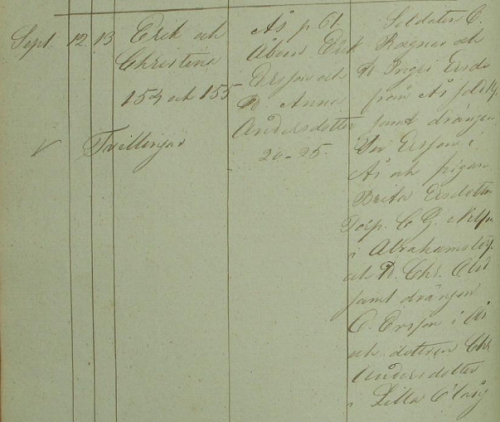 Sept. 12 13 Erik och
Christina
154 och 155
Tvillingar
Ås p. 61.
Abm Erik
Ersson och
H. Anna
Andersdotter
26-25.
Soldaten C.
Ragnar och
H. Ingri Ersd
från Ås
samt drängen
Ersson i
Ås och pigan
Brita Ersdotter
Torp. C. G.
i Abrahamstorp
och H. Chr.
samt drängen
C. Ersson i Ås
och dottren Chr
Andersdotter
i Lilla